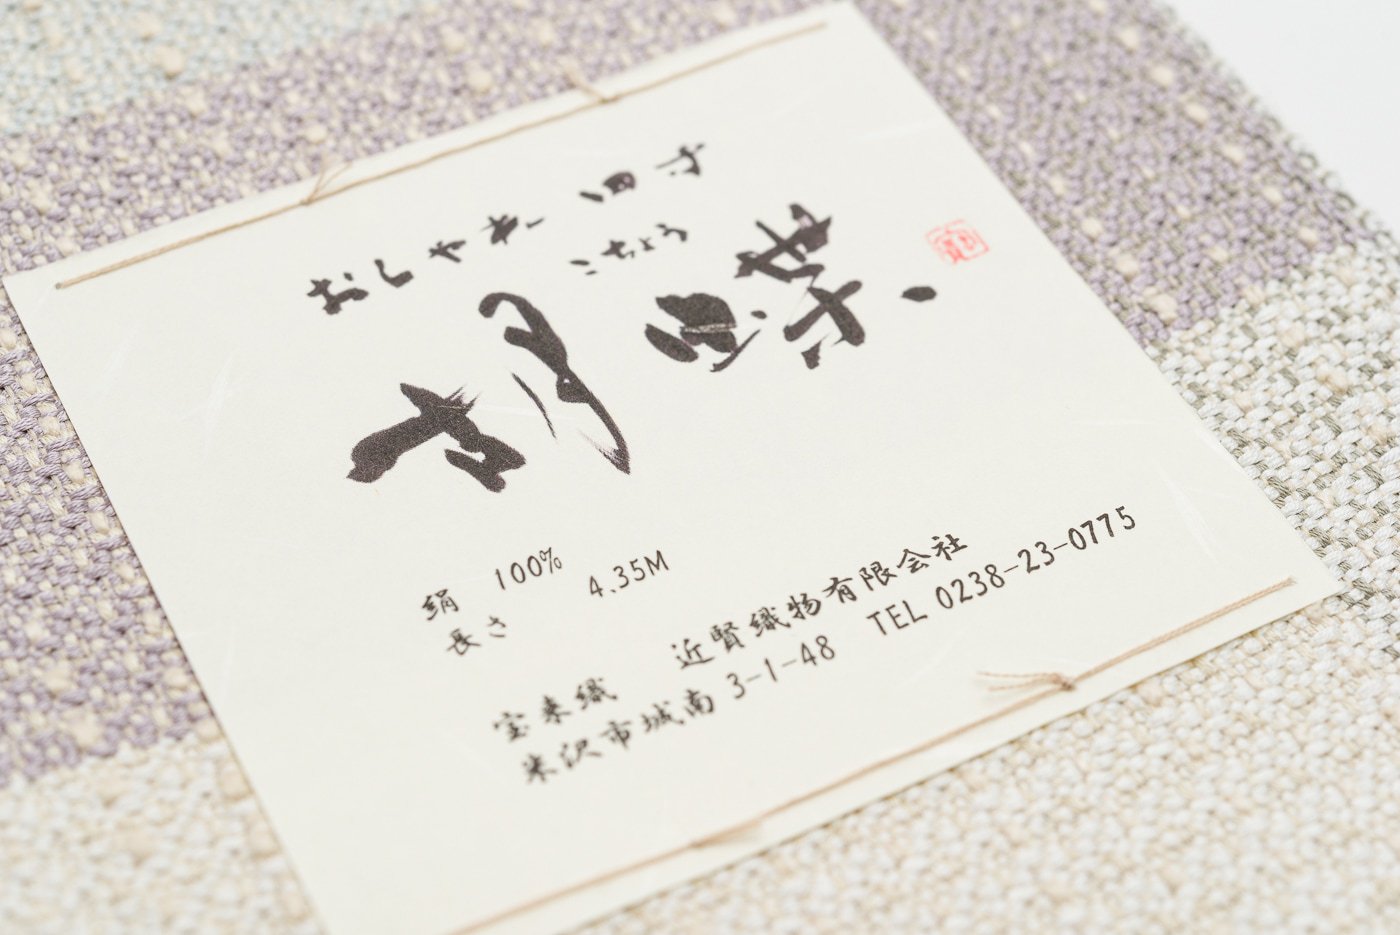 おしゃれ 四寸
こちょう
胡蝶、
絹 100%
長さ 4.35M
宝来織 近賢織物有限会社
米沢市城南3-1-48 TEL 0238-23-0775